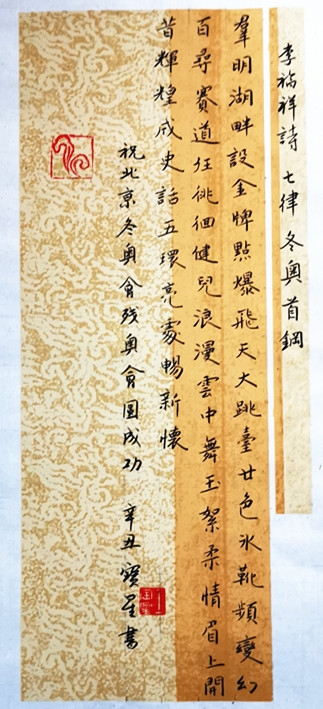 李福祥詩 七律 冬奧首鋼
羣明湖畔設金牌點爆飛天大跳臺廿色氷靴頻變幻
百尋賽道任徘徊健兒浪漫雲中舞玉絮柔情眉上開
昔輝煌成史話五環亮處暢新懷
祝北京冬奥會残奥會圆成功 辛丑 寶星書